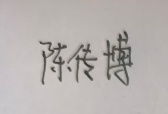 陈传博